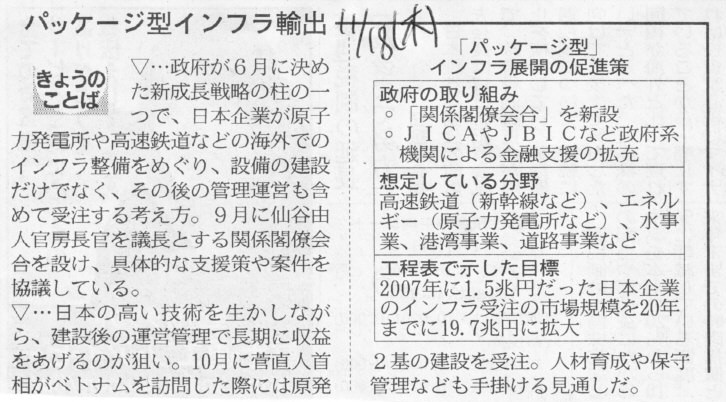 パッケージ型インフラ輸出
11/18(木)
きょうの
ことば
▽…政府が６月に決め
た新成長戦略の柱の一
つで、日本企業が原子
力発電所や高速鉄道などの海外での
インフラ整備をめぐり、設備の建設
だけでなく、その後の管理運営も含
めて受注する考え方。９月に仙谷由
人官房長官を議長とする関係閣僚会
合を設け、具体的な支援策や案件を
協議している。
▽…日本の高い技術を生かしなが
ら、建設後の運営管理で長期に収益
をあげるのが狙い。10月に菅直人首
相がベトナムを訪問した際には原発
２基の建設を受注。人材育成や保守
管理なども手掛ける見通しだ。
「パッケージ型」
インフラ展開の促進策
政府の取り組み
○「関係閣僚会合」を新設
○ＪＩＣＡやＪＢＩＣなど政府系
機関による金融支援の拡充
想定している分野
高速鉄道（新幹線など）、エネル
ギー（原子力発電所など）、水事
業、港湾事業、道路事業など
工程表で示した目標
2007年に1.5兆円だった日本企業
のインフラ受注の市場規模を20年
までに19.7兆円に拡大